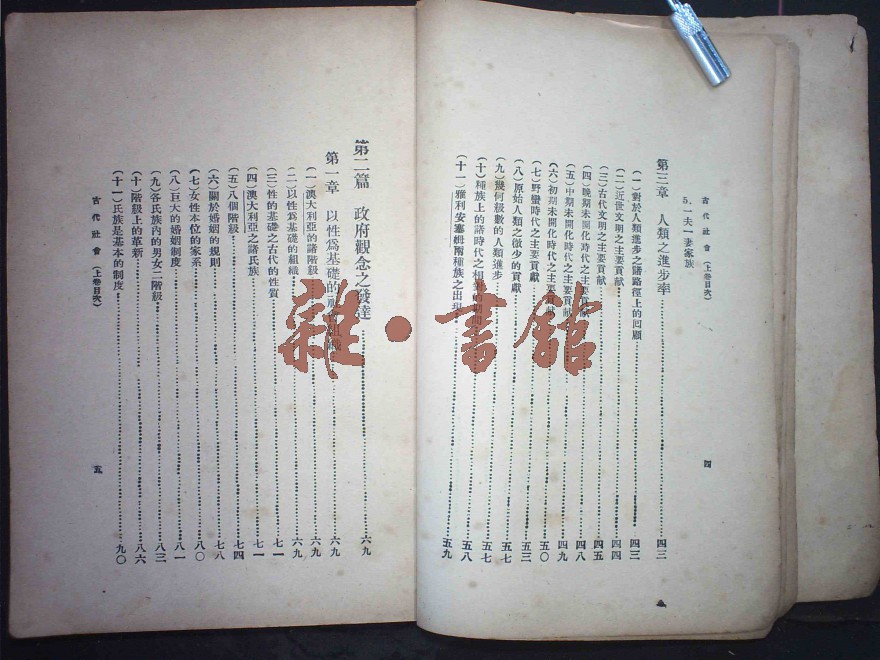 古代社會（上卷目次）
四
5.一夫一妻家族
第三章　人類之進步率………四三
（一）對於人類進步之諸路徑上的回顧………四三
（二）近世文明之主要貢獻………四四
（三）古代文明之主要貢獻………四五
（四）晚期未開化時代之主要貢獻………四八
（五）中期未開化時代之主要貢獻………四九
（六）初期未開化時代之主要貢獻………五〇
（七）野蠻時代之主要貢獻………五三
（八）原始人類之微少的貢獻………五五
（九）幾何級數的人類進步………五七
（十）種族上的諸時代之相對的期間………五八
（十一）雅利安塞姆兩種族之出現………五九
第二篇　政府觀念之發達………六九
第一章　以性爲基礎的社會組織………六九
（一）澳大利亞的諸階級………六九
（二）以性爲基礎的組織………六九
（三）性的基礎之古代的性質………七一
（四）澳大利亞之諸氏族………七一
（五）八個階級………七四
（六）關於婚姻的規則………七八
（七）女性本位的家系………八〇
（八）巨大的婚姻制度………八一
（九）各氏族內的男女二階級………八三
（十）階級上的革新………八六
（十一）氏族是基本的制度………九〇
古代社會（上卷目次）
五
雜·書館